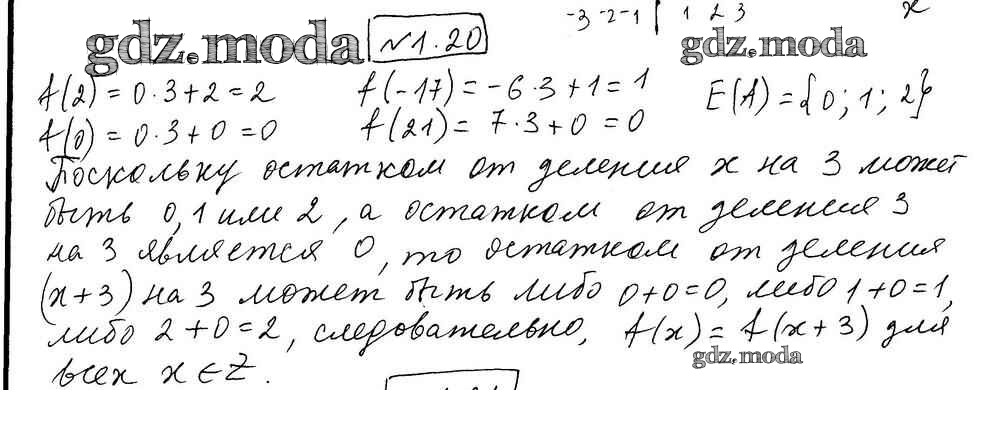 -3 -2 -1 | 1 2 3 x
gdz.moda №1.20 gdz.moda
f(2) = 0·3+2 = 2 f(-17) = -6·3+1 = 1 E(A) = {0; 1; 2}
f(0) = 0·3+0 = 0 f(21) = 7·3+0 = 0
Поскольку остатком от деления x на 3 может
быть 0, 1 или 2, а остатком от деления 3
на 3 является 0, то остатком от деления
(x+3) на 3 может быть либо 0+0=0, либо 1+0=1,
либо 2+0=2, следовательно, f(x) = f(x+3) для
gdz.moda
всех x ∈ Z.